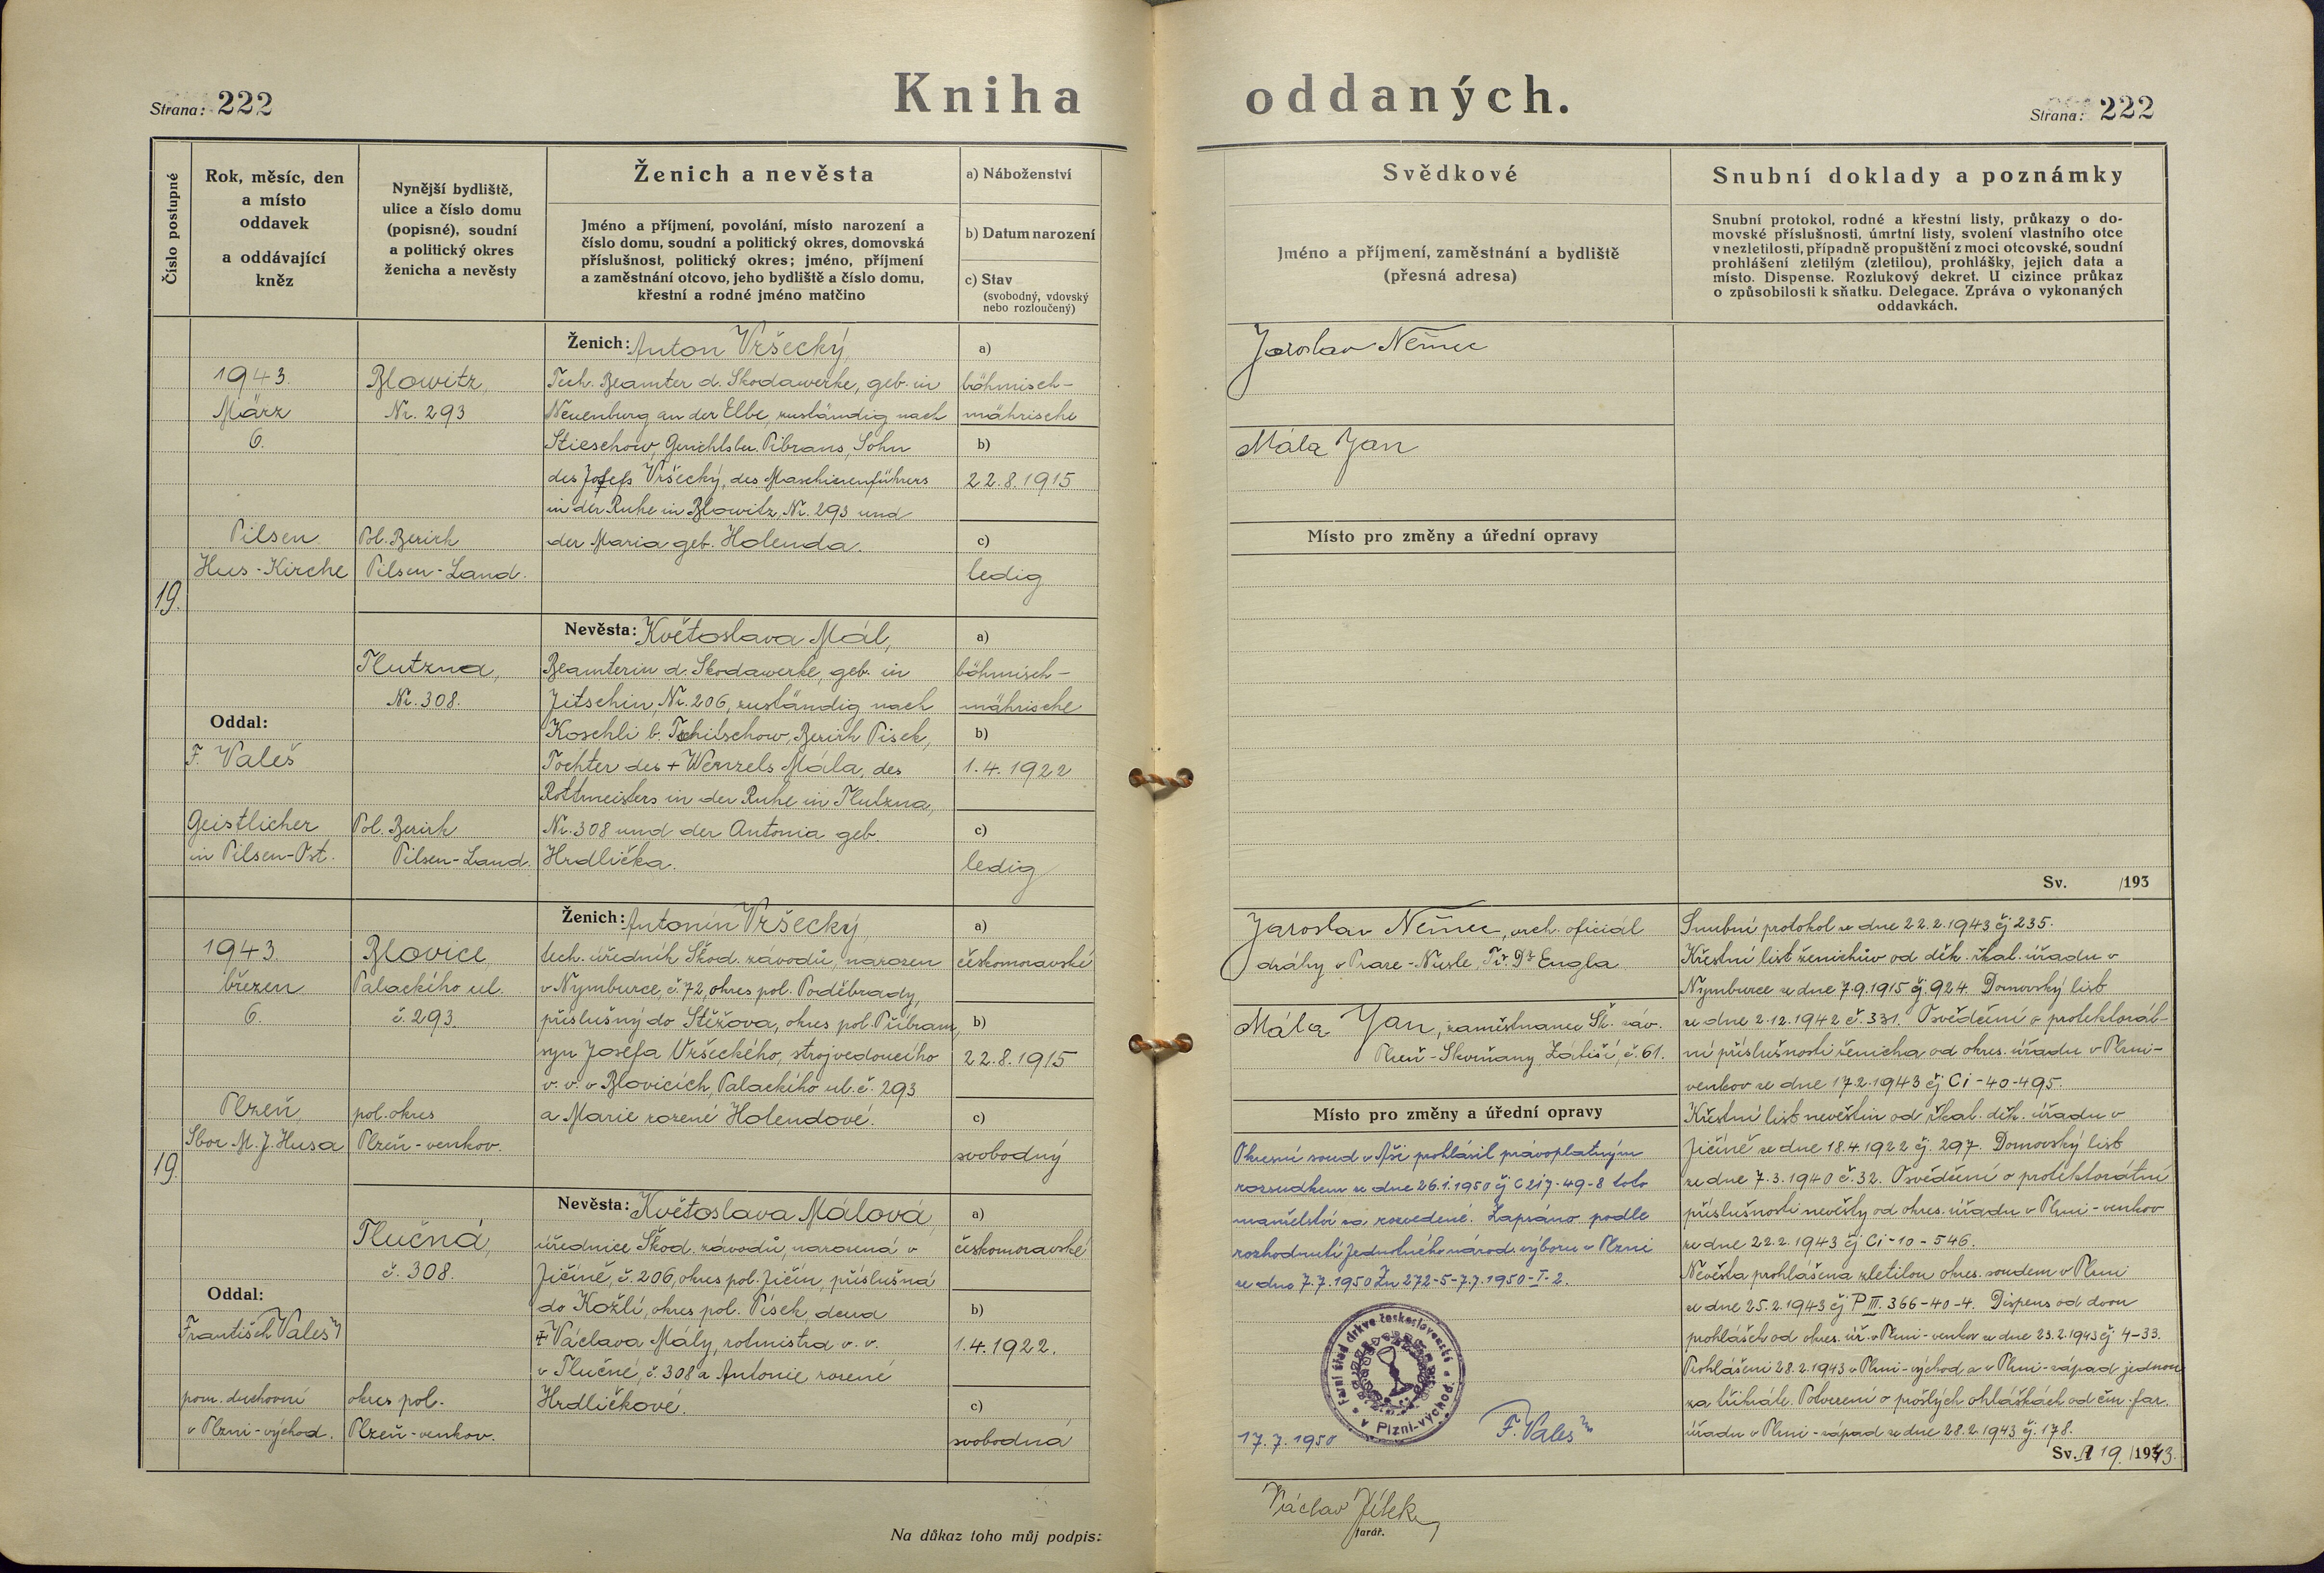 Strana: 222
Kniha oddaných.
Strana: 222
Číslo postupné
Rok, měsíc, den
a místo
oddavek
a oddávající
kněz
Nynější bydliště,
ulice a číslo domu
(popisné), soudní
a politický okres
ženicha a nevěsty
Ženich a nevěsta
Jméno a příjmení, povolání, místo narození a
číslo domu, soudní a politický okres, domovská
příslušnost, politický okres; jméno, příjmení
a zaměstnání otcovo, jeho bydliště a číslo domu,
křestní a rodné jméno matčino
a) Náboženství
b) Datum narození
c) Stav
(svobodný, vdovský
nebo rozloučený)
Svědkové
Jméno a příjmení, zaměstnání a bydliště
(přesná adresa)
Snubní doklady a poznámky
Snubní protokol, rodné a křestní listy, průkazy o do-
movské příslušnosti, úmrtní listy, svolení vlastního otce
v nezletilosti, případně propuštění z moci otcovské, soudní
prohlášení zletilým (zletilou), prohlášky, jejich data a
místo. Dispense. Rozlukový dekret. U cizince průkaz
o způsobilosti k sňatku. Delegace. Zpráva o vykonaných
oddavkách.
19.
1943.
März
6.
Pilsen
Hus-Kirche
Oddal:
F. Valeš
Geistlicher
in Pilsen-Ost.
Blowitz,
Nr. 293
Pol. Bezirk
Pilsen-Land.
Tlutzna,
Nr. 308.
Pol. Bezirk
Pilsen-Land.
Ženich: Anton Vršecký,
Tech. Beamter d. Skodawerke, geb. in
Neuenburg an der Elbe, zuständig nach
Stieschow, Gerichtsbez. Pibrans, Sohn
des Josefs Vršecký, des Maschienenführers
in der Ruhe in Blowitz, Nr. 293 und
der Maria geb. Holenda.
Nevěsta: Květoslava Mál,
Beamterin d. Skodawerke, geb. in
Jitschin, Nr. 206, zuständig nach
Koschli b. Tschitschow, Bezirk Pisek,
Tochter des + Wenzels Mála, des
Rottmeisters in der Ruhe in Tlutzna,
Nr. 308 und der Antonia geb.
Hrdlička.
a)
böhmisch-
mährische
b)
22.8.1915
c)
ledig
a)
böhmisch-
mährische
b)
1.4.1922
c)
ledig
Jaroslav Němec
Mála Jan
Místo pro změny a úřední opravy
Sv. /193
19.
1943.
březen
6.
Plzeň
Sbor M. J. Husa
Oddal:
František Valeš
pom. duchovní
v Plzni-východ.
Blovice,
Palackého ul.
č. 293.
pol. okres
Plzeň-venkov.
Tlučná,
č. 308.
okres pol.
Plzeň-venkov.
Ženich: Antonín Vršecký,
tech. úředník Škod. závodů, narozen
v Nymburce, č. 72, okres pol. Poděbrady,
příslušný do Stěžova, okres pol. Příbram,
syn Josefa Vršeckého, strojvedoucího
v. v. v Blovicích, Palackého ul. č. 293
a Marie rozené Holendové.
Nevěsta: Květoslava Málová,
úřednice Škod. závodů, narozená v
Jičíně, č. 206, okres pol. Jičín, příslušná
do Kožlí, okres pol. Písek, dcera
+ Václava Mály, rotmistra v. v.
v Tlučné, č. 308 a Antonie rozené
Hrdličkové.
a)
českomoravské
b)
22.8.1915
c)
svobodný
a)
českomoravské
b)
1.4.1922.
c)
svobodná
Jaroslav Němec, vrch. oficiál
dráhy v Praze-Nusle, Tř. Dr Engla
Mála Jan, zaměstnanec Šk. záv.
Plzeň-Skvrňany, Zátiší, č. 61.
Místo pro změny a úřední opravy
Okresní soud v Aši prohlásil právoplatným
rozsudkem ze dne 26.1.1950 čj C 217-49-8 toto
manželství za rozvedené. Zapsáno podle
rozhodnutí Jednotného národ. výboru v Plzni
ze dne 7.7.1950 Zn 272-5-7.7.1950-I-2.
Farní úřad církve československé v Plzni-východ.
17.7.1950
F. Valeš
Snubní protokol ze dne 22.2.1943 čj 235.
Křestní list ženichův od děk. řkat. úřadu v
Nymburce ze dne 7.9.1915 čj. 924. Domovský list
ze dne 2.12.1942 č. 331. Osvědčení o protektorát-
ní příslušnosti ženicha od okres. úřadu v Plzni-
venkov ze dne 17.2.1943 čj Ci-40-495.
Křestní list nevěstin od řkat. děk. úřadu v
Jičíně ze dne 18.4.1922 čj. 297. Domovský list
ze dne 7.3.1940 č. 32. Osvědčení o protektorátní
příslušnosti nevěsty od okres. úřadu v Plzni-venkov
ze dne 22.2.1943 čj Ci-10-546.
Nevěsta prohlášena zletilou okres. soudem v Plzni
ze dne 25.2.1943 čj P III. 366-40-4. Dispens od dvou
prohlášek od okres. úř. v Plzni-venkov ze dne 23.2.1943 čj. 4-33.
Prohlášeni 28.2.1943 v Plzni-východ a v Plzni-západ jednou
za třikráte. Potvrzení o prošlých ohláškách od čm. far.
úřadu v Plzni-západ ze dne 28.2.1943 čj. 178.
Sv. 19. /1943.
Na důkaz toho můj podpis:
Václav Jílek
farář.